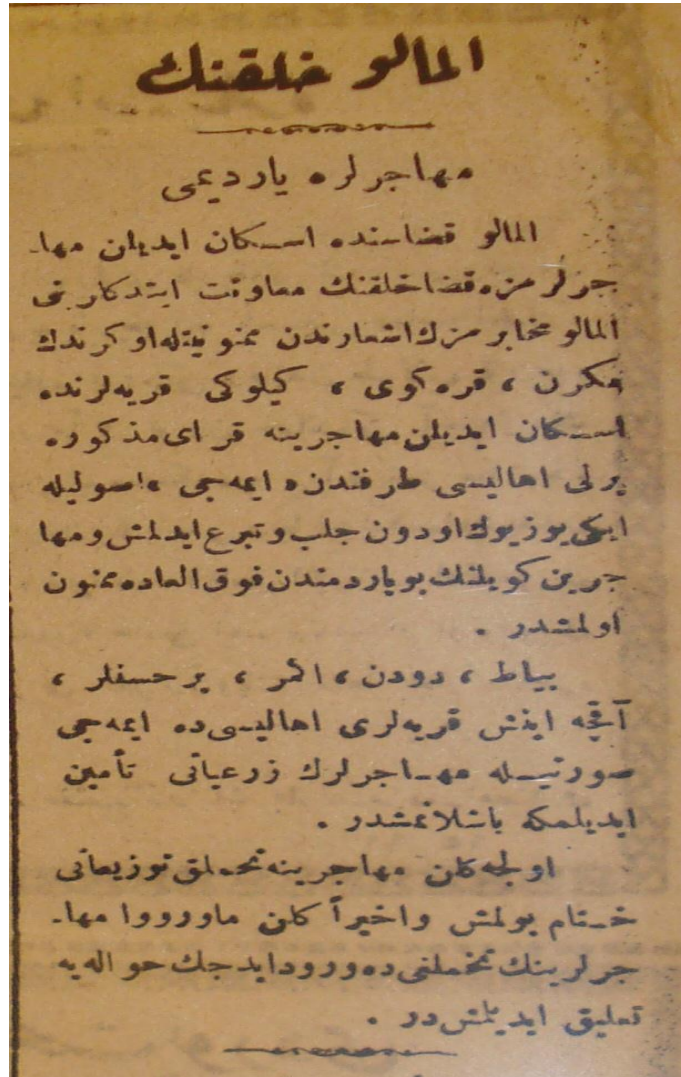 المالو خلقنك
مهاجرلره یاردیمی
المالو قضاسنده اسكان ایدیلن مها-
جرلرمزه قضا خلقنك معاونت ایتدكلرینی
المالو مخابرمزك اشعارندن ممنونیتله اوكرندك
، قره كوی ، كیلوكی قریه لرنده
اسكان ایدیلن مهاجرینه قرای مذكوره
یرلی اهالیسی طرفندن « ایمه جی » اصولیله
ایكی یوز یوك اودون جلب و تبرع ایدلمش و مها
جرین كویلنك بو یاردمندن فوق العاده ممنون
اولمشدر .
بیاط ، دودن ، ،
آقچه اینش قریه لری اهالیسی ده ایمه جی
صورتیله مهاجرلرك زرعیاتی تأمین
ایدیلمكه باشلانمشدر .
اولجه كلن مهاجرینه تخملق توزیعاتی
ختام بولمش و اخیراً كلن ماوروا مها-
جرلرینك تخملغی ده ورود ایده جك حواله یه
تعلیق ایدیلمش در .